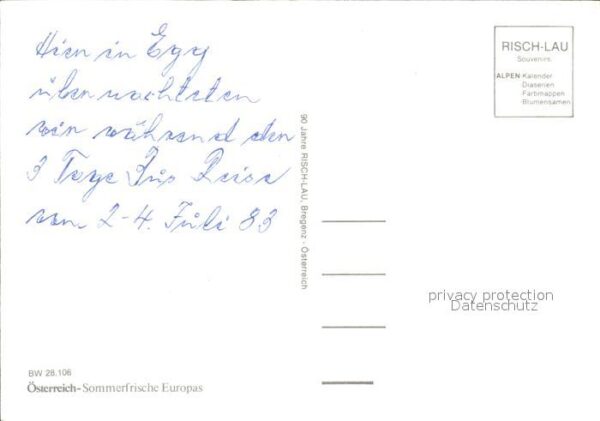 Hier in Egg
übernachteten
wir während den
3 Tage Bus Reise
vom 2-4. Juli 83
90 Jahre RISCH-LAU, Bregenz - Österreich
RISCH-LAU
Souvenirs
ALPEN-Kalender
Diaserien
Farbmappen
Blumensamen
privacy protection
Datenschutz
BW 28.106
Österreich-Sommerfrische Europas